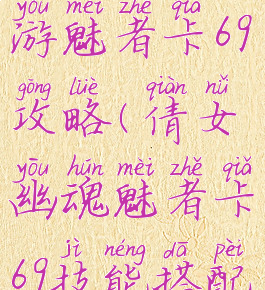 yóu mèi zhě qiǎ
游魅者卡69
gōng lüè qiàn nǚ
攻略(倩女
yōu hún mèi zhě qiǎ
幽魂魅者卡
jì néng dā pèi
69技能搭配